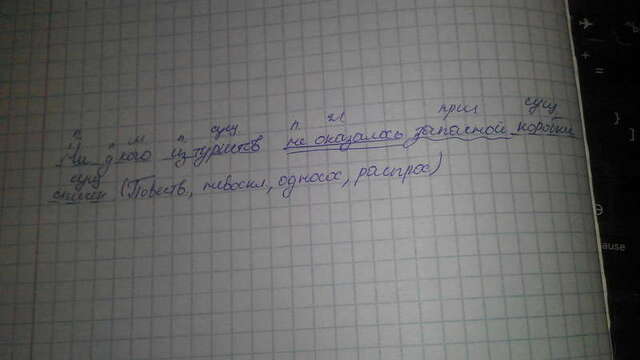 п п м п сущ п гл прил сущ
Ни у кого из туристов не оказалось запасной коробки
сущ
спичек (Повеств, невоскл, односос, распрос)
ause